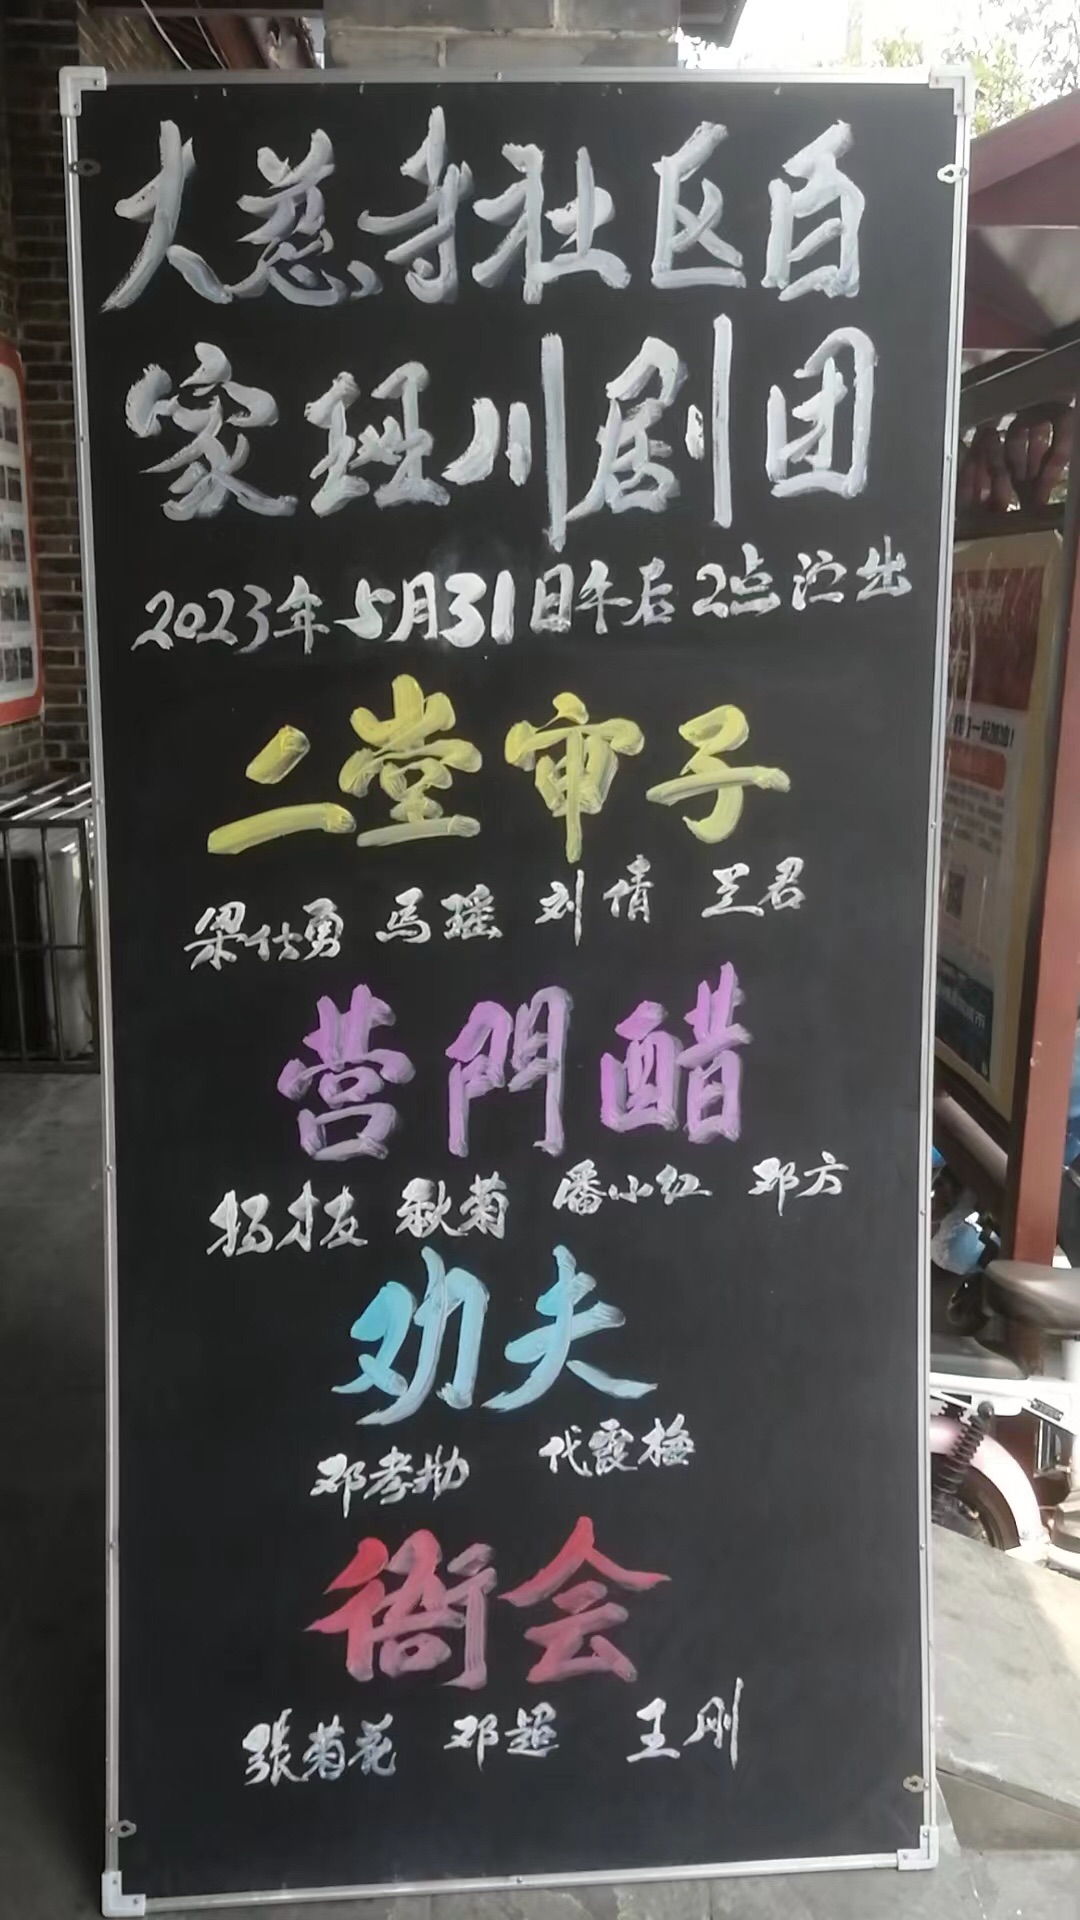 大慈寺社区百
家班川剧团
2023年5月31日午后2点演出
二堂审子
梁仕勇 马瑶 刘倩 兰君
营門醋
杨才友 秋菊 潘小红 邓方
功夫
邓孝勤 代霞梅
衙会
張菊花 邓超 王刚
我们一起加油!